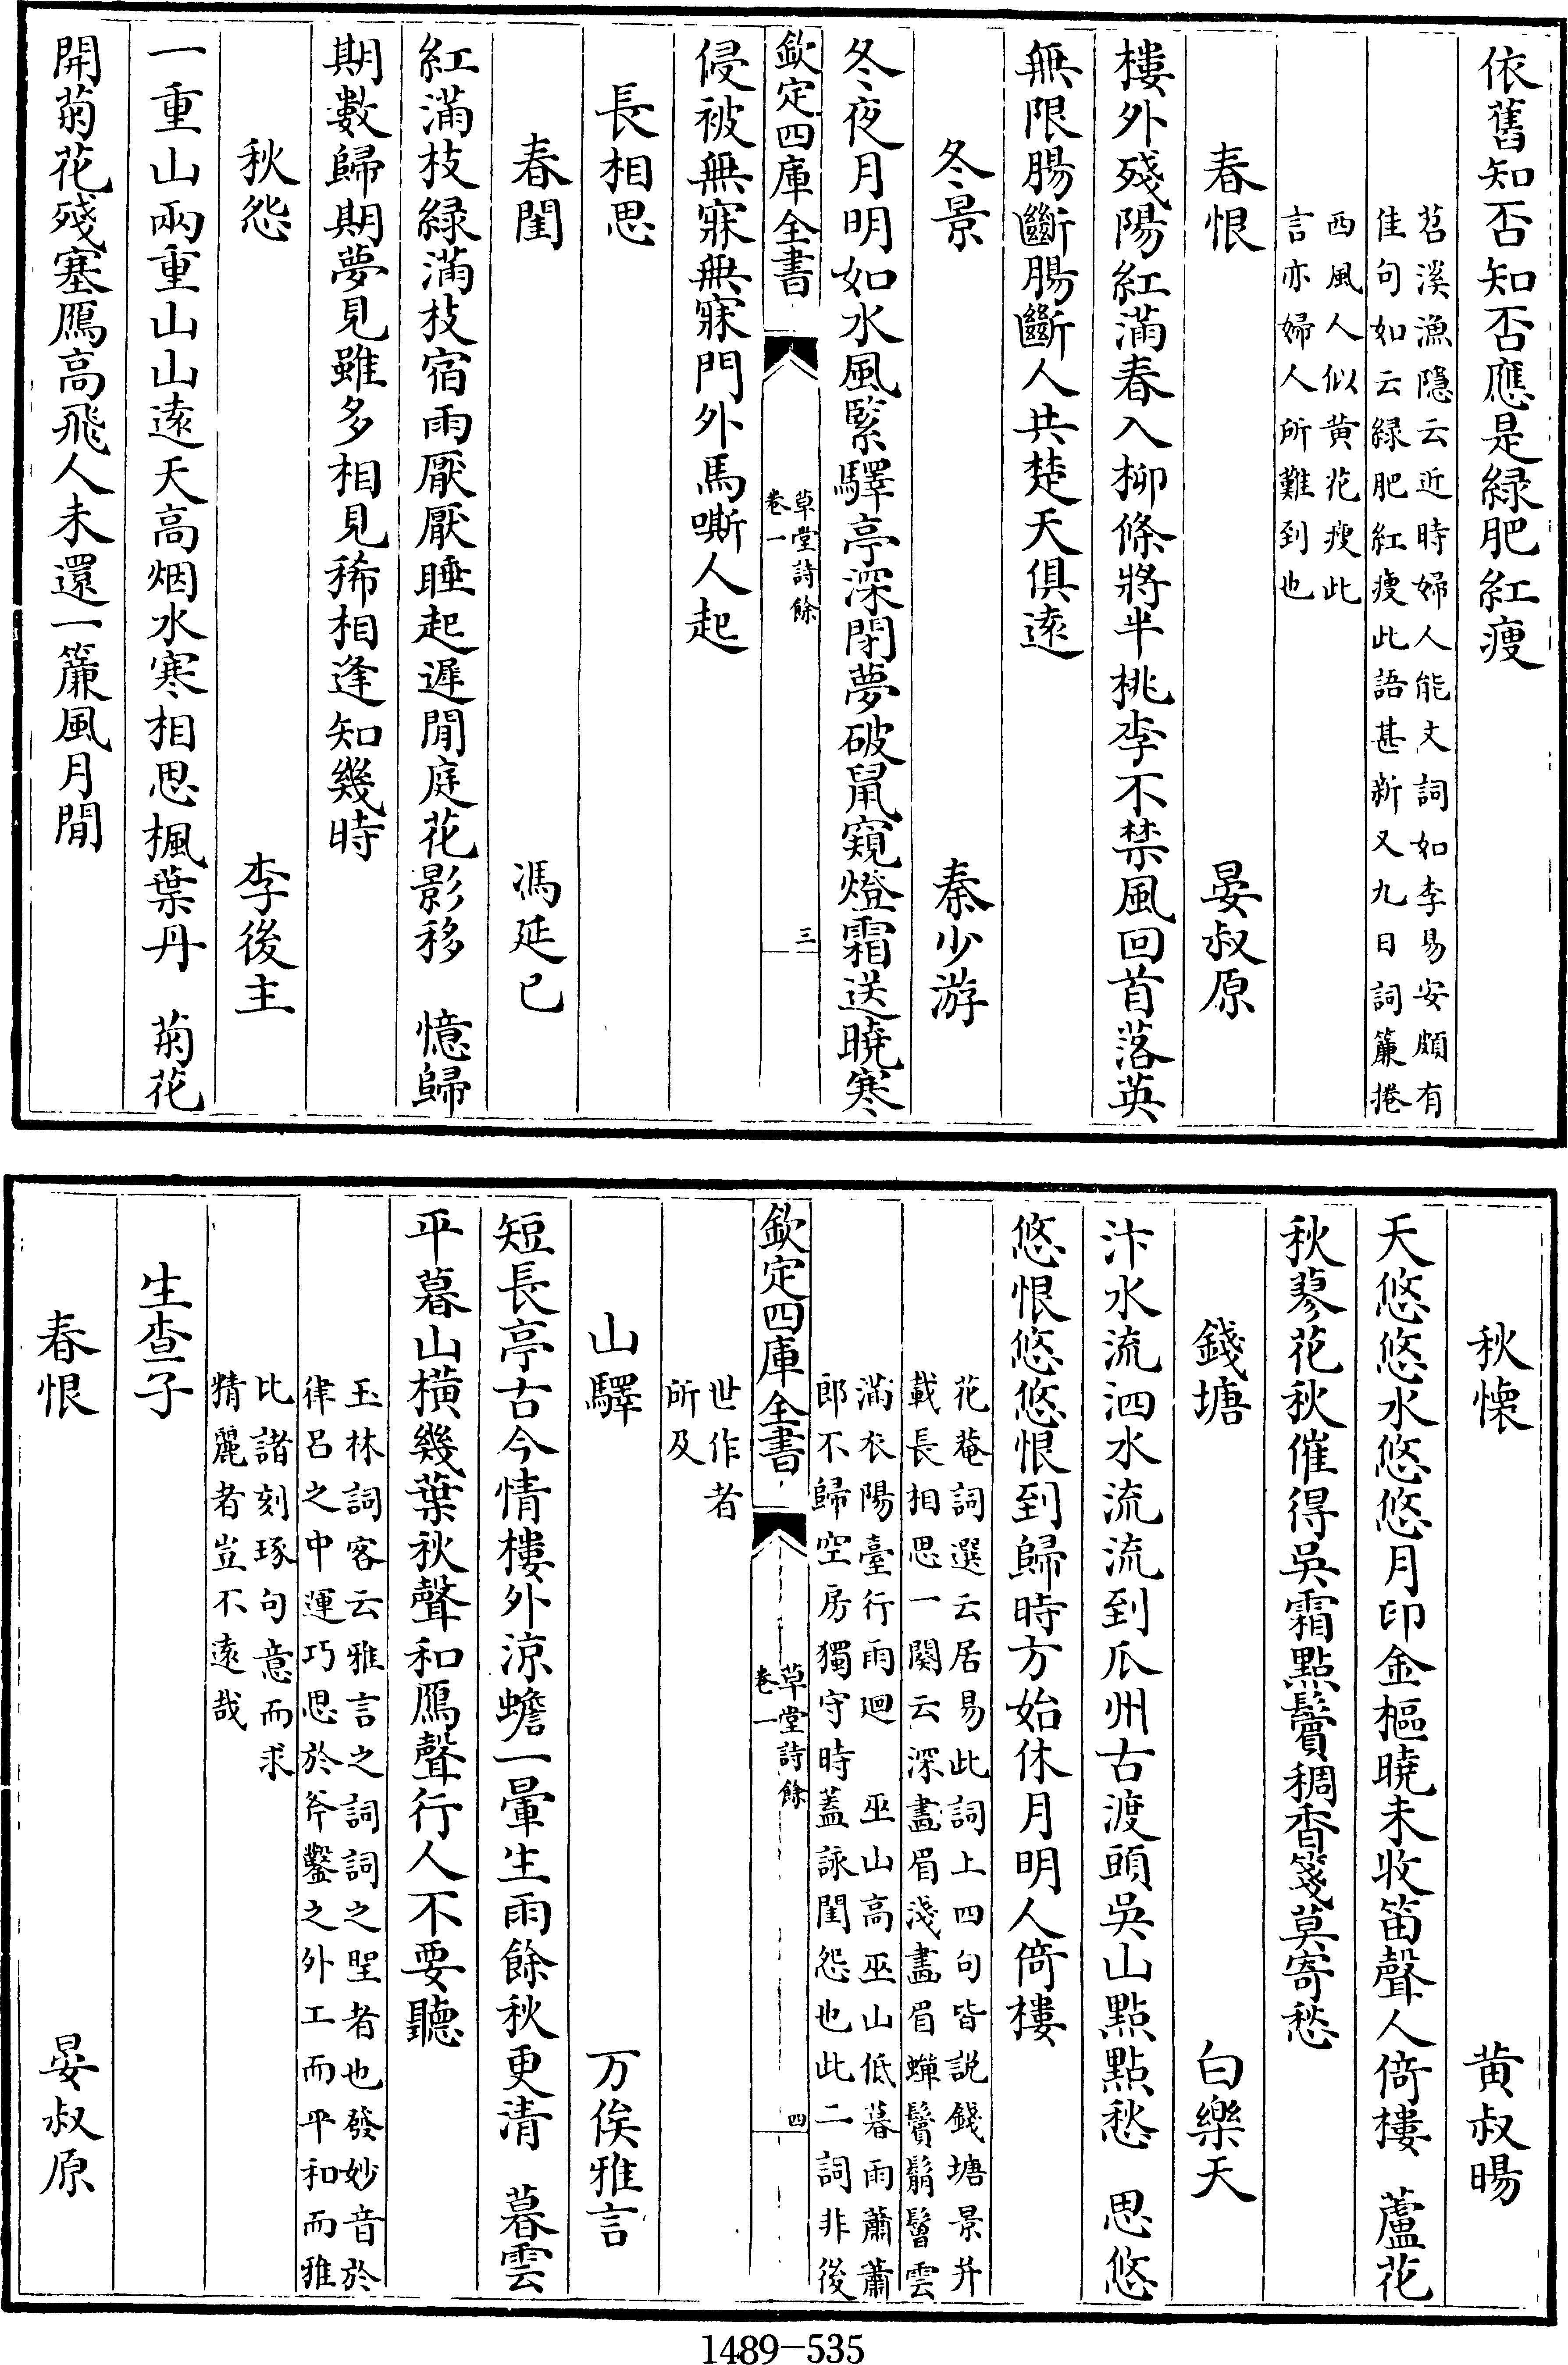 依舊知否知否應是緑肥紅瘦
苕溪漁隠云近時婦人能文詞如李易安頗有
佳句如云緑肥紅瘦此語甚新又九日詞簾捲
西風人似黄花瘦此
言亦婦人所難到也
春恨 晏叔原
樓外殘陽紅滿春入柳條將半桃李不禁風回首落英
無限腸斷腸斷人共楚天俱逺
冬景 秦少游
冬夜月明如水風緊驛亭深閉夢破鼠窺燈霜送曉寒
欽定四庫全書 草堂詩餘 卷一 三
侵被無寐無寐門外馬嘶人起
長相思
春閨 馮延已
紅滿枝緑滿枝宿雨厭厭睡起遲閒庭花影移 憶歸
期數歸期夢見雖多相見稀相逢知幾時
秋怨 李後主
一重山兩重山山逺天高烟水寒相思楓葉丹 菊花
開菊花殘塞鴈高飛人未還一簾風月閒
秋懐 黄叔暘
天悠悠水悠悠月印金樞曉未收笛聲人倚樓 蘆花
秋蓼花秋催得吳霜點鬢稠香箋莫寄愁
錢塘 白樂天
汴水流泗水流流到瓜州古渡頭吳山點點愁 思悠
悠恨悠悠恨到歸時方始休月明人倚樓
花菴詞選云居易此詞上四句皆説錢塘景并
載長相思一闋云深畫眉淺畫眉蟬鬢鬅鬙雲
滿衣陽臺行雨廻 巫山高巫山低暮雨蕭蕭
郎不歸空房獨守時蓋詠閨怨也此二詞非後
欽定四庫全書 草堂詩餘 卷一 四
世作者
所及
山驛 万俟雅言
短長亭古今情樓外涼蟾一暈生雨餘秋更清 暮雲
平暮山横幾葉秋聲和鴈聲行人不要聽
玉林詞客云雅言之詞詞之聖者也發妙音於
律吕之中運巧思於斧鑿之外工而平和而雅
比諸刻琢句意而求
精麗者豈不逺哉
生查子
春恨 晏叔原
1489-535